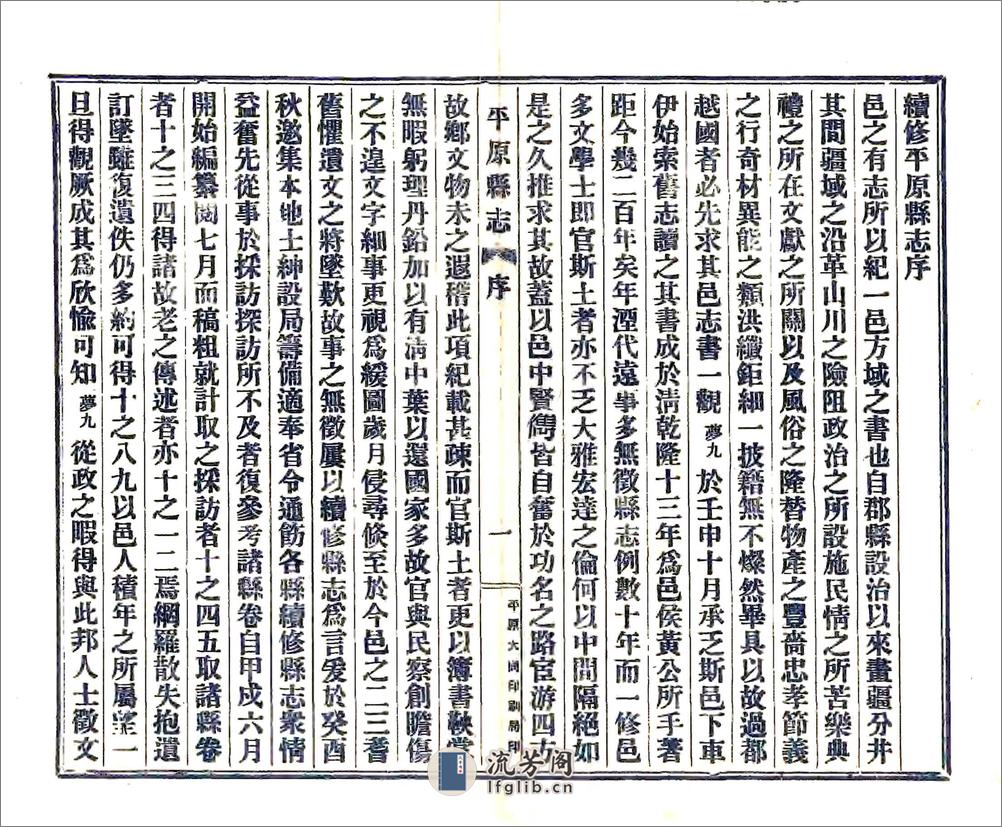 續修平原縣志序
邑之有志所以紀一邑方域之書也自郡縣設治以來畫疆分井
其間疆域之沿革山川之險阻政治之所設施民情之所苦樂典
禮之所在文獻之所關以及風俗之隆替物產之豐嗇忠孝節義
之行奇材異能之類洪纖鉅細一披籍無不燦然畢具以故過都
越國者必先求其邑志書一觀夢九於壬申十月承乏斯邑下車
伊始索舊志讀之其書成於清乾隆十三年爲邑侯黃公所手著
距今幾二百年矣年湮代遠事多無徵縣志例數十年而一修邑
多文學士即官斯土者亦不乏大雅宏達之倫何以中間隔絕如
是之久推求其故蓋以邑中賢儁皆自奮於功名之路宦游四方
平原縣志 序 一 平原大同印刷局印
故鄉文物未之遐稽此項紀載甚疎而官斯土者更以簿書鞅掌
無暇躬理丹鉛加以有清中葉以還國家多故官與民察創瞻傷
之不遑文字細事更視爲緩圖歲月侵尋倏至於今邑之二三耆
舊懼遺文之將墜歎故事之無徵屢以續修縣志爲言爰於癸酉
秋邀集本地士紳設局籌備適奉省令通飭各縣續修縣志衆情
益奮先從事於採訪採訪所不及者復參考諸縣卷自甲戌六月
開始編纂閱七月而稿粗就計取之採訪者十之四五取諸縣卷
者十之三四得諸故老之傳述者亦十之一二焉網羅散失抱遺
訂墜雖復遺佚仍多約可得十之八九以邑人積年之所屬望一
旦得觀厥成其爲欣愉可知夢九從政之暇得與此邦人士徵文
流芳閣
lfglib.cn